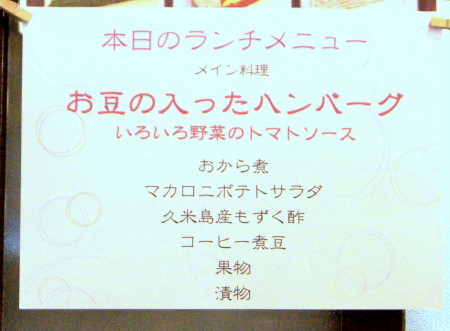 本日のランチメニュー
メイン料理
お豆の入ったハンバーグ
いろいろ野菜のトマトソース
おから煮
マカロニポテトサラダ
久米島産もずく酢
コーヒー煮豆
果物
漬物